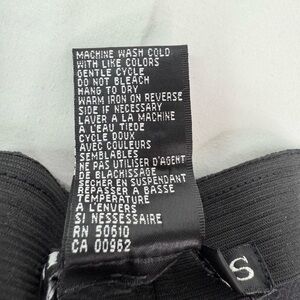 MACHINE WASH COLD
WITH LIKE COLORS
GENTLE CYCLE
DO NOT BLEACH
HANG TO DRY
WARM IRON ON REVERSE
SIDE IF NECESSARY
LAVER A LA MACHINE
A L'EAU TIEDE
CYCLE DOUX
AVEC COULEURS
SEMBLABLES
NE PAS UTILISER D'AGENT
DE BLACHISSAGE
SECHER EN SUSPENDANT
REPASSER A BASSE
TEMPERATURE
A L'ENVERS
SI NESSESSAIRE
RN 50610
CA 00962
S